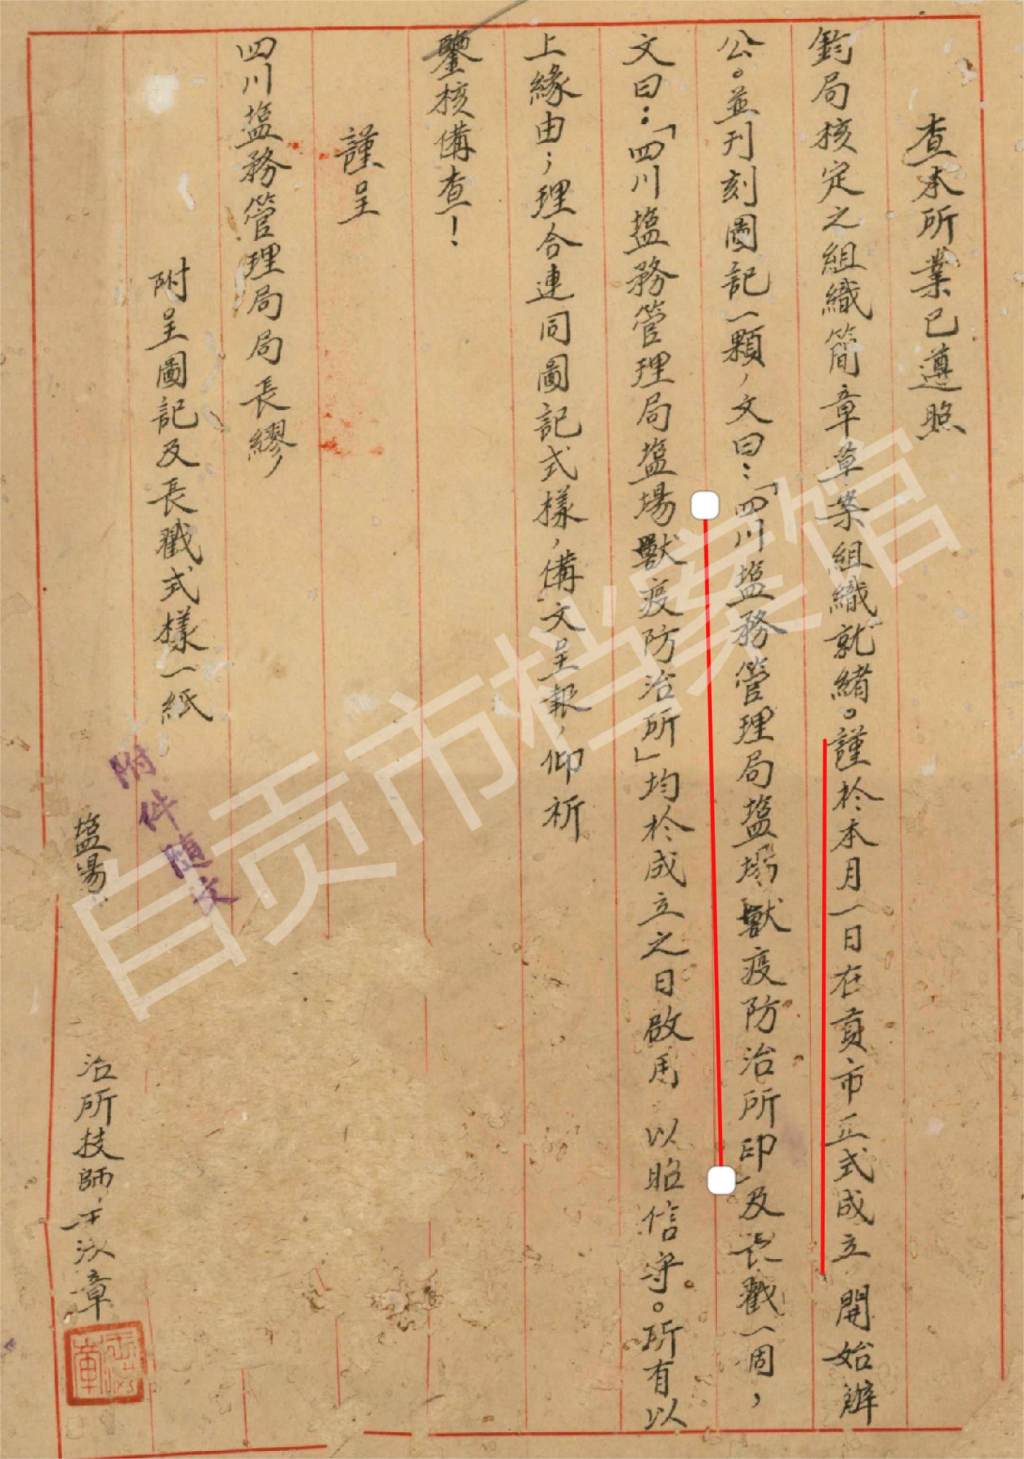 查本所業已遵照
鈞局核定之組織簡章草案組織就緒。謹於本月一日在貢市正式成立 開始辦
公。並刊刻圖記一顆，文曰：「四川塩務管理局塩場獸疫防治所印」及長戳一個，
文曰：「四川塩務管理局塩場獸疫防治所」均於成立之日啟用 以昭信守。所有以
上緣由；理合連同圖記式樣，備文呈報，仰祈
鑒核備查！
謹呈
四川塩務管理局局長繆
附呈圖記及長戳式樣一紙
附件隨文
塩場
治所技師 章
自贡市档案馆